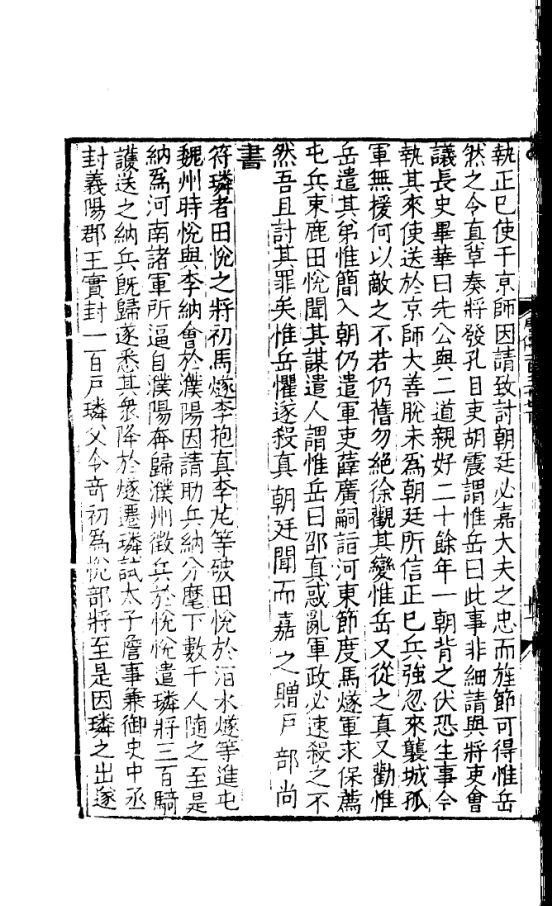 執正巳使于京師因請致討朝廷必嘉大夫之忠而旌節可得惟岳
然之令直草奏將發孔目吏胡震謂惟岳曰此事非細請與將吏會
議長史畢華曰先公與二道親好二十餘年一朝背之伏恐生事令
執其來使送於京師大善脫未爲朝廷所信正巳兵強忽來襲城孤
軍無援何以敵之不若仍舊勿絕徐觀其變惟岳又從之真又勸惟
岳遣其弟惟簡入朝仍遣軍吏薛廣嗣詣河東節度馬燧軍求保薦
屯兵束鹿田悅聞其謀遣人謂惟岳曰邵真惑亂軍政必速殺之不
然吾且討其罪矣惟岳懼遂殺真朝廷聞而嘉之贈戸部尚
書
符璘者田悅之將初馬燧李抱真李芃等破田悅於洹水燧等進屯
魏州時悅與李納會於濮陽因請助兵納分麾下數千人隨之至是
納爲河南諸軍所逼自濮陽奔歸濮州徵兵於悅悅遣璘將三百騎
護送之納兵旣歸遂悉其衆降於燧遷璘試太子詹事兼御史中丞
封義陽郡王實封一百戸璘父令奇初爲悅部將至是因璘之出遂